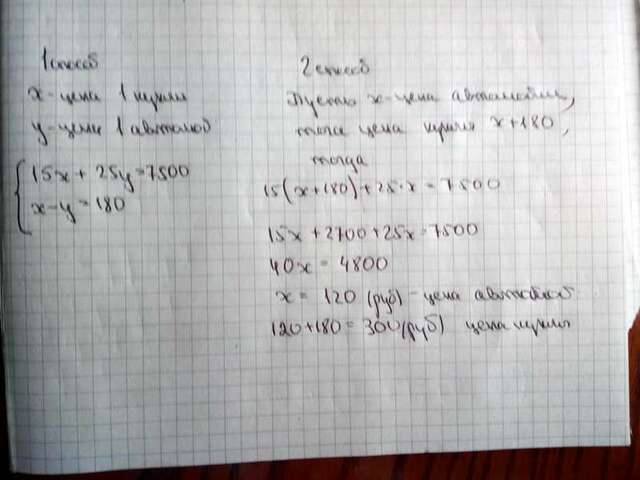 1 способ
x - цена 1 куклы
y - цена 1 автомоб
{ 15x + 25y = 7500
x - y = 180
2 способ
Пусть x - цена автомобиля,
тогда цена куклы x + 180,
тогда
15(x + 180) + 25·x = 7500
15x + 2700 + 25x = 7500
40x = 4800
x = 120 (руб) - цена автомобиля
120 + 180 = 300 (руб) цена куклы